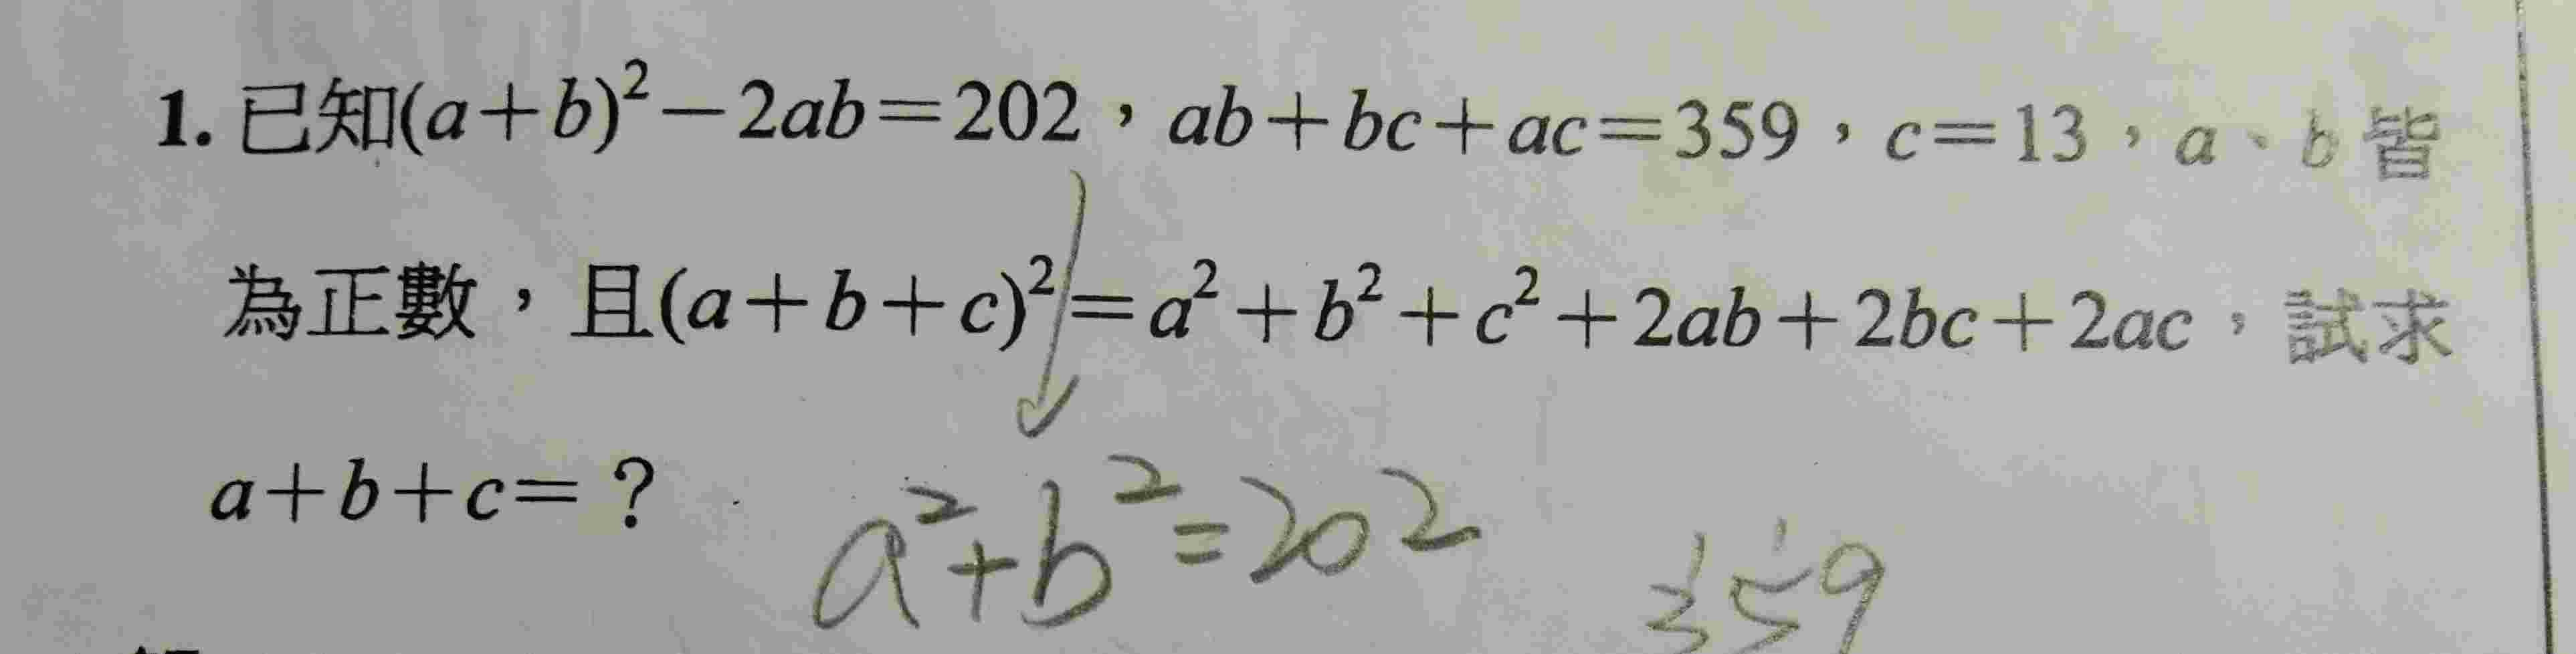 1. 已知(a+b)²－2ab=202，ab+bc+ac=359，c=13，a、b皆
為正數，且(a+b+c)²=a²+b²+c²+2ab+2bc+2ac，試求
a+b+c=？
a²+b²=202
359